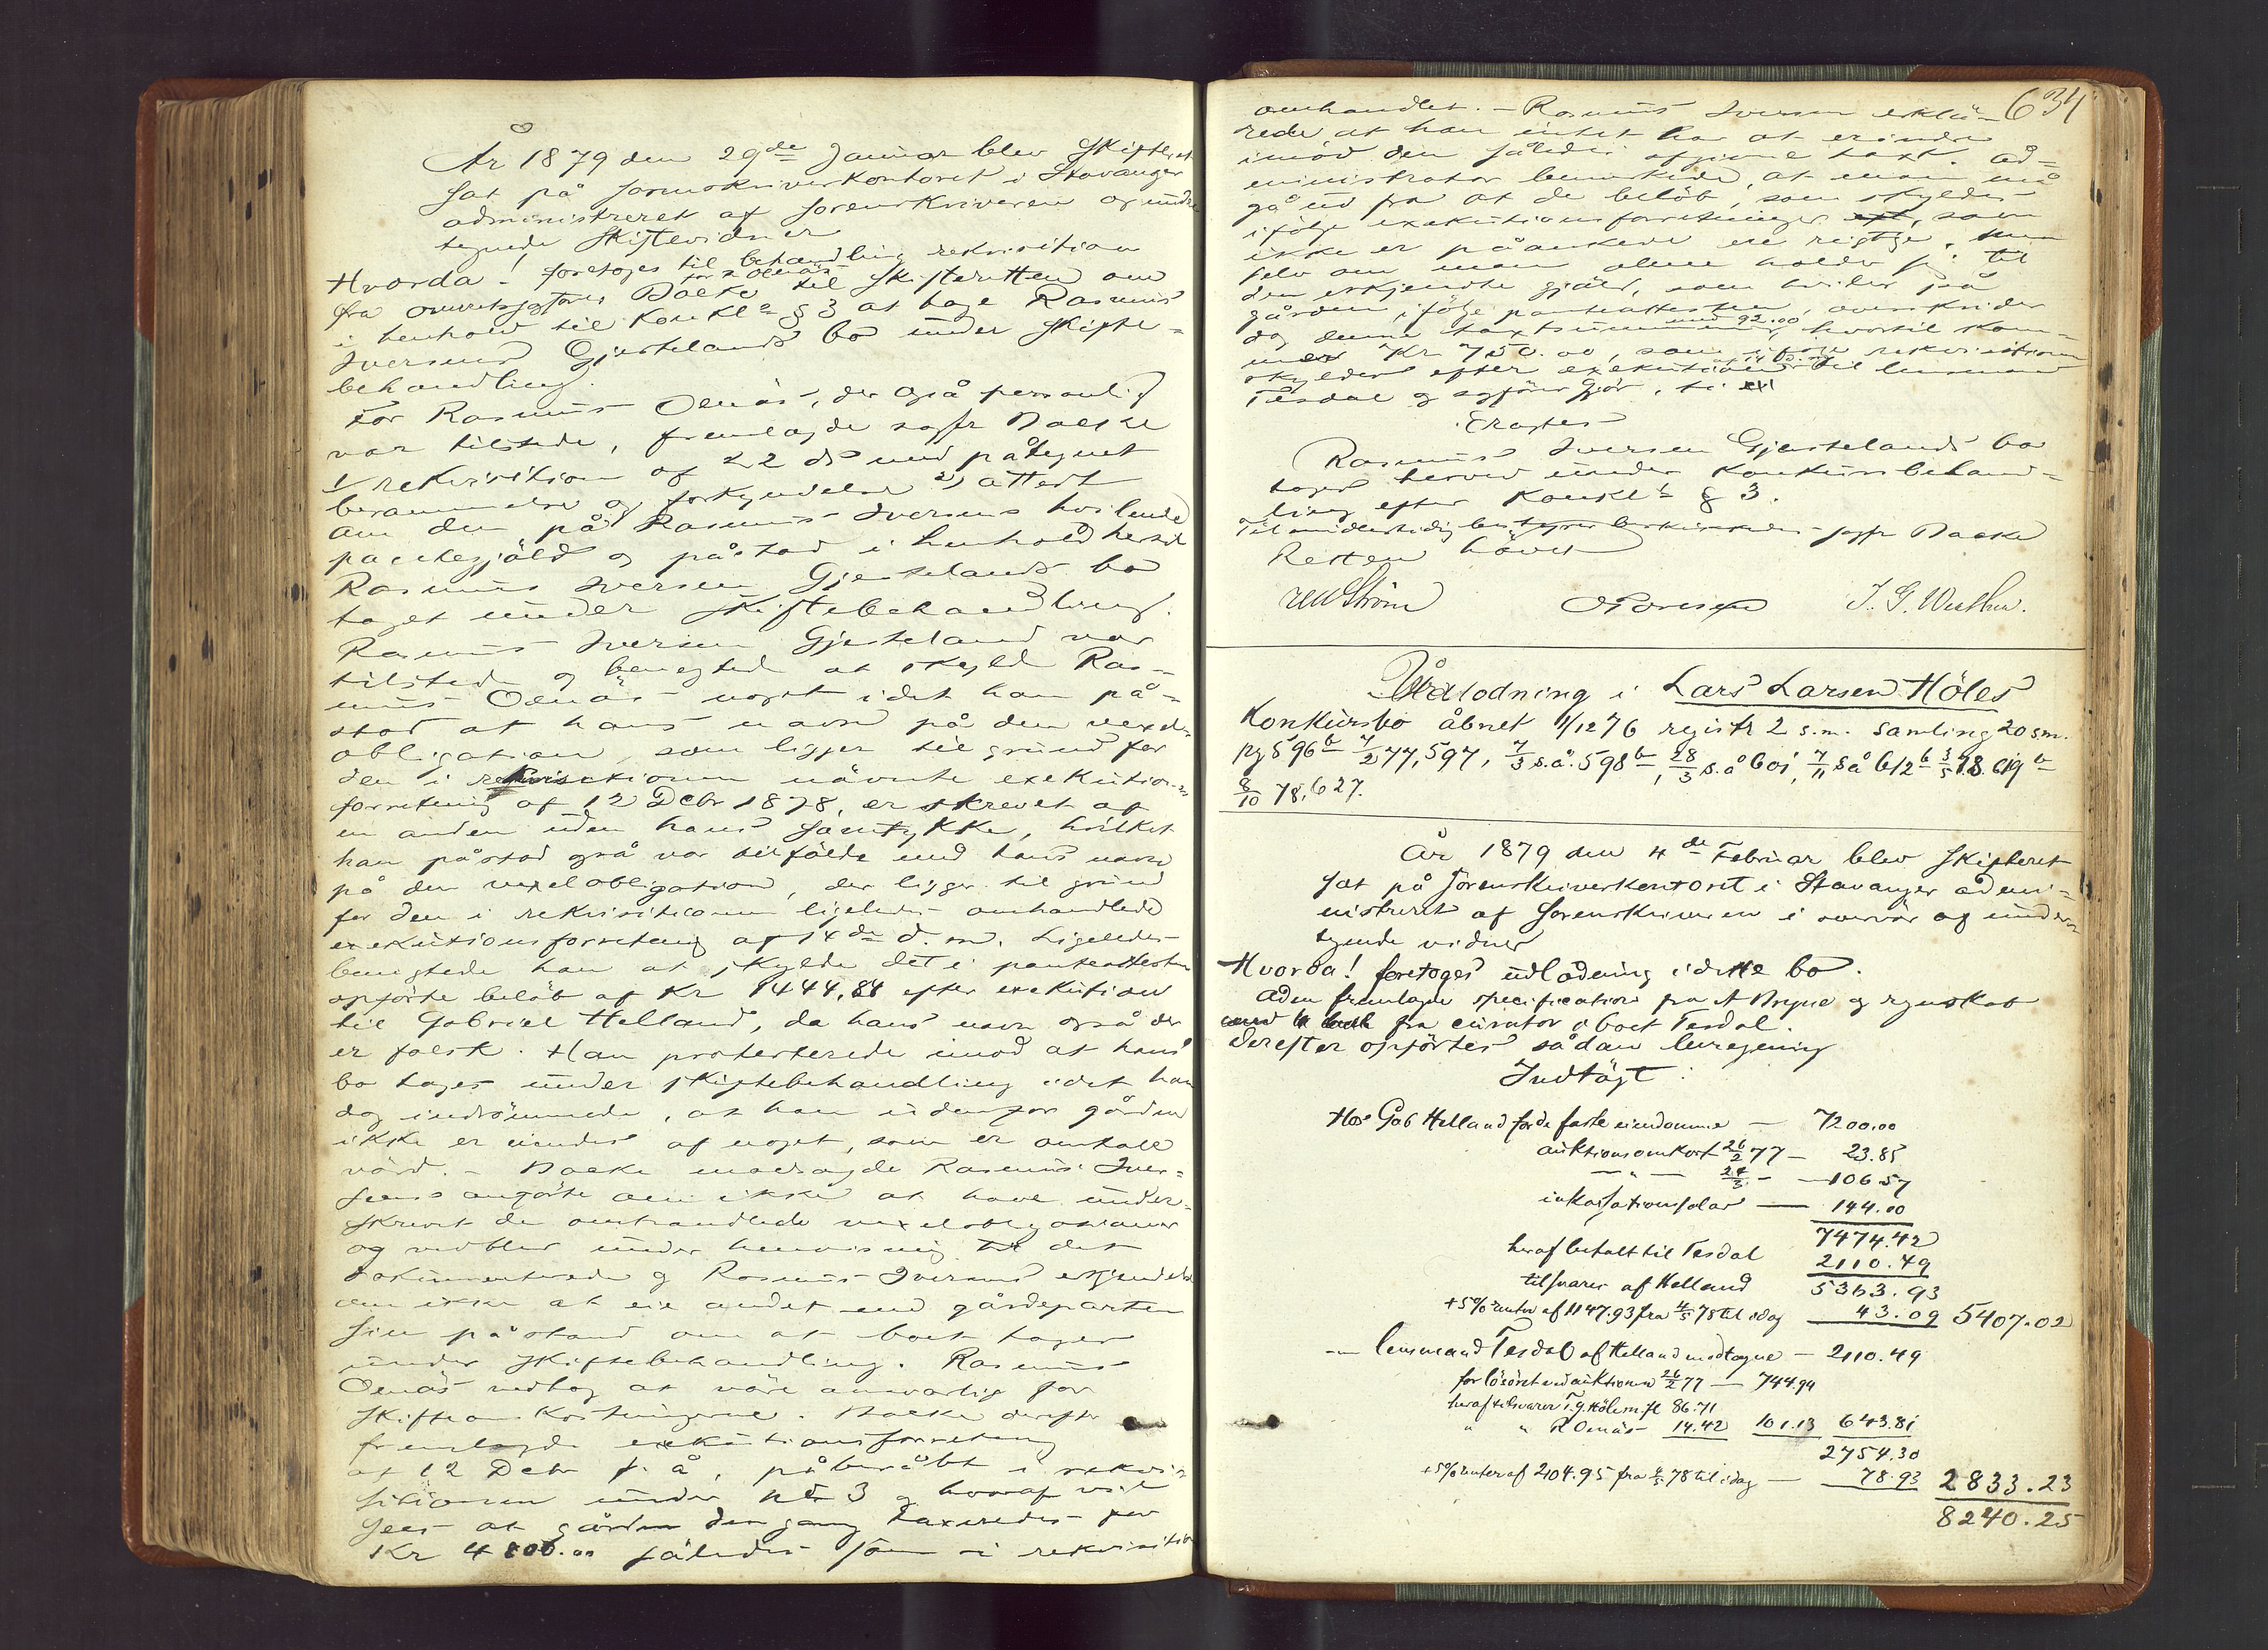 År 1879 den 29de Januar blev Skifteret
sat på sorenskriverkontoret i Stavanger
administreret af sorenskriveren og under
tegnede Skiftevidner
Hvorda! foretoges til behandling rekvisition
fra overretssagfører Bakke for R Oenäs til Skifteretten om
i henhold til Konkl § 3 at tage Rasmus
Iversens Gjestelands bo under Skifte-
behandling.
For Rasmus Oenäs, der også personlig
var tilstede, fremlagde sagfr Bakke
1/ rekvisition af 22 ds med påtegnet
berammelse og forkyndelse 2) attest
om den på Rasmus Iversens hvilende
pantegjäld og påstod i henhold hertil
Rasmus Iversen Gjestelands bo
taget under Skiftebehandling.
Rasmus Iversen Gjesteland var
tilstede og benegtede at skylde Ras-
mus Oenäs noget idet han på-
stod at hans navn på den vexel-
obligation, som ligger til grund for
den i rekvisitionen nävnte exekutions-
forretning af 12 Decbr 1878, er skrevet af
en anden uden hans samtykke, hvilket
han påstod også var tilfälde med hans navn
på den vexelobligation, der ligger til grund
for den i rekvisitionen ligeledes omhandlede
exekutionsforretning af 14de d. m. Ligeledes
benegtede han at skylde det i panteattesten
opförte belöb af Kr 1444,84 efter exekution
til Gabriel Helland, da hans navn også der
er falsk. Han protesterede imod at hans
bo tages under skiftebehandling idet han
dog indrömmede, at han udenfor gården
ikke er eiendes af noget, som er omtale
värd. – Bakke modsagde Rasmus Iver-
sens anförte om ikke at have under-
skrevet de omhandlede vexelobligationer
og vedblev under henvisning til det
dokumenterede og Rasmus Iversens erkjendelse
om ikke at eie andet end gårdeparten
sin påstand om at boet tages
under Skiftebehandling. Rasmus
Oenäs vedtog at väre ansvarlig for
Skifteomkostningerne. Bakke derefter
fremlagde exekutionsforretning
af 12 Decbr f. å, påberåbt i rekvi-
sitionen under No 3 og hvoraf vil
sees at gården den gang taxeredes for
Kr 4800.00 således som i rekvisition
634
omhandlet. – Rasmus Iversen erklä-
rede at han intet har at erindre
imod den således afgivne taxt. Ad-
ministrator bemärkede, at man må
gå ud fra at de belöb, som skyldes
ifölge exekutionsforretninger, som
ikke er påankede ere rigtige. Men
selv om man alene holder sig til
den erkjendte gjäld, som hviler på
gården, ifölge panteattesten, overskrider
dog denne taxtsummen med 92.00, hvortil kom-
mer Kr 750.00, som ifölge rekvisitionen
skyldes efter exekutioner af 14 ds til lensmand
Tesdal og sagförer Gjör, ti
Eragtes
Rasmus Iversen Gjestelands bo
tages herved under Konkursbehand-
ling efter Konkl § 3.
Til midlertidig bestyrer beskikkedes sagfr Bakke
Retten hävet
J. G. Westbu.
Udlodning i Lars Larsen Höles
Konkursbo åbnet 11/12 76 registr 2 s.m. samling 20 s.m.
pg 596b 7/2 77, 597, 7/3 s.å. 598b, 28/3 s.å 601, 7/11 så 612b 3/5 78. 619b
8/10 78, 627.
År 1879 den 4de Februar blev skifteret
sat på Sorenskriverkontoret i Stavanger admi-
nistreret af Sorenskriveren i overvär af under-
tegnede vidner
Hvorda! foretoges udlodning i dette bo.
Aden fremlagde specification fra A Bryne og regnskab
fra curator i boet Tesdal.
Derefter opförtes sådan beregning
Indtägt:
Hos Gab Helland for de faste eiendomme – 7200.00
auktionsomkost 26/2 77 – 23.85
– " – 24/3 – – 106 57
inkassationssalär – 144.00
7474.42
heraf betalt til Tesdal 2110.49
tilsvares af Helland 5363.93
+ 5% renter af 1147.93 fra 4/5 78 til idag 43.09 5407.02
– lensmand Tesdal af Helland modtagne – 2110.49
for lösöret ved auktionen 26/2 77 – 744.94
heraf tilsvarer T. g. Höle m. fl 86.71
" " R Oenäs 14.42 101.13 643.81
2754.30
+ 5% renter af 2104.95 fra 4/5 78 til idag – 78.93 2833.23
8240.25